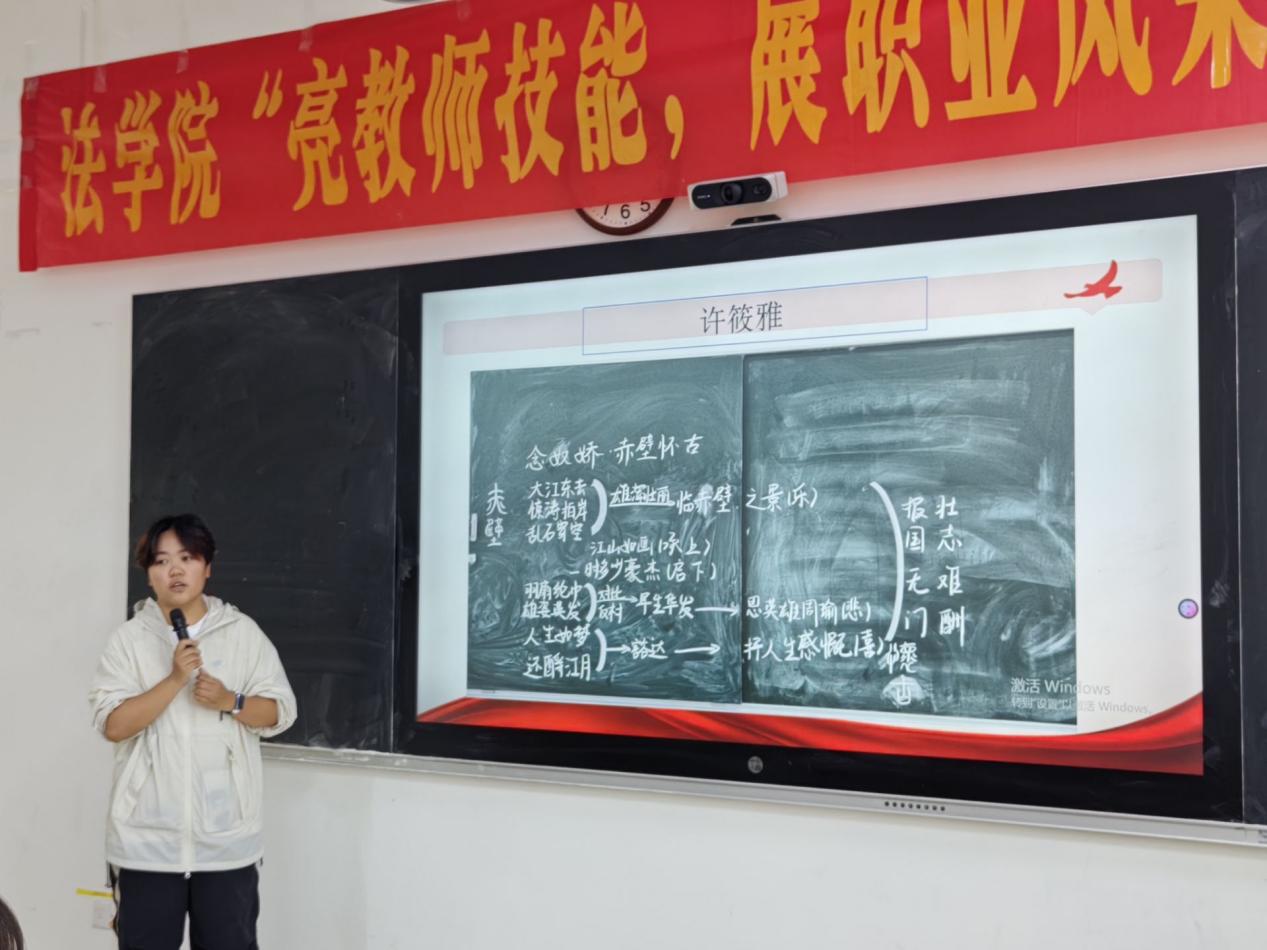 法学院“亮教师技能，展职业风采
7 6 5
许筱雅
念奴娇·赤壁怀古
赤壁
大江东去
惊涛拍岸
乱石穿空
雄浑壮丽 临赤壁之景(乐)
江山如画(承上)
一时多少豪杰(启下)
羽扇纶巾
雄姿英发
对比
反衬
早生华发
思英雄周瑜(悲)
人生如梦
还酹江月
豁达
抒人生感慨(喜)
怀古
报国无门
壮志难酬
激活 Windows
转到"设置"以激活 Windows。